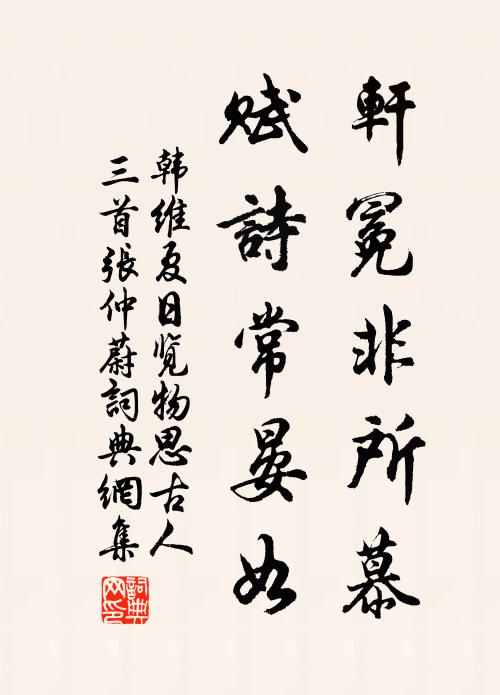 軒冕非所慕
賦詩常晏如
韩維夏日览物思古人
三首張仲蔚詞典網集
詞典
网印